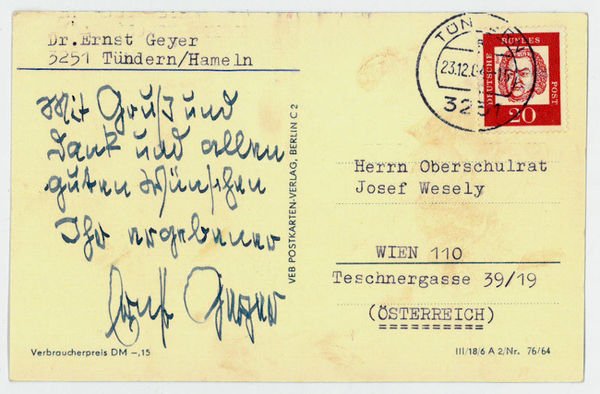 Dr.Ernst Geyer
3251 Tündern/Hameln
Mit Gruß und
Dank und allen
guten Wünschen
Ihr ergebener
Ernst Geyer
Verbraucherpreis DM –,15
VEB POSTKARTEN-VERLAG, BERLIN C 2
23.12.
3251
DEUTSCHE BUNDESPOST
20
Herrn Oberschulrat
Josef Wesely
WIEN 110
Teschnergasse 39/19
(ÖSTERREICH)
III/18/6 A 2/Nr. 76/64